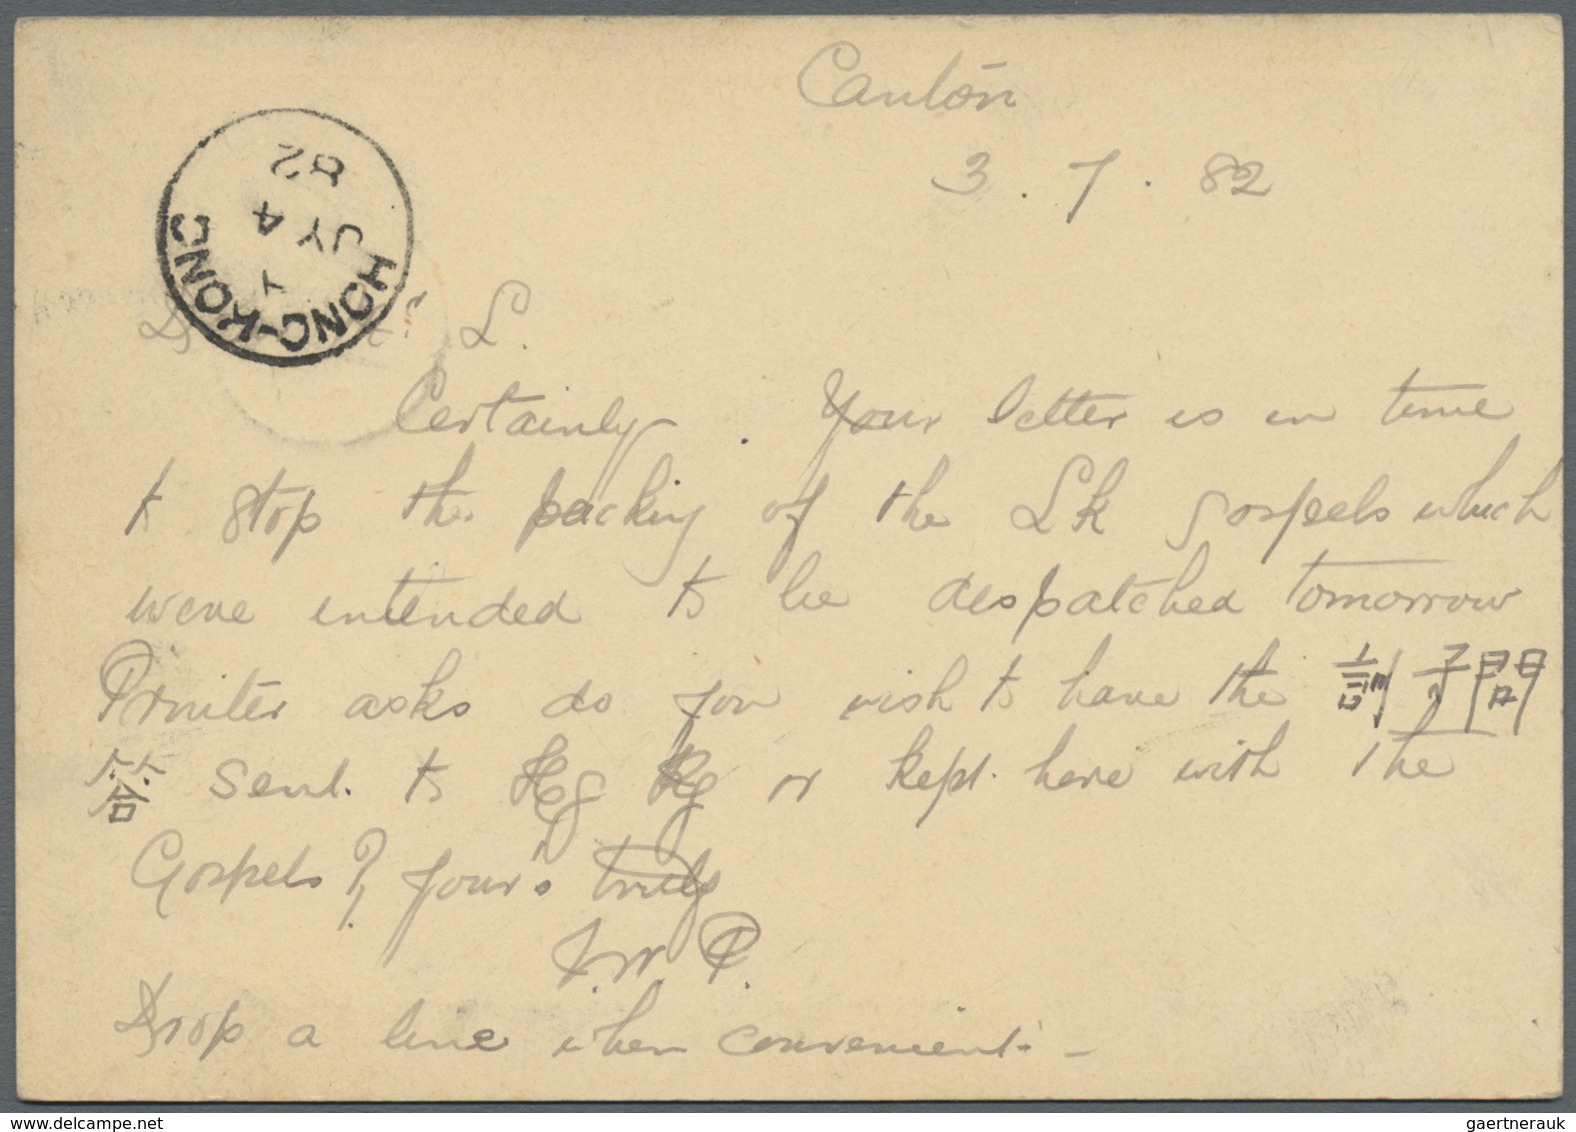 Canton
3 . 7 . 82
HONG-KONG
JY 4
82
L.
Certainly. Your letter is in time
to stop the packing of the Lk Gospels which
were intended to be despatched tomorrow
Printer asks do you wish to have the 訓子問
答 sent. to Hg Kg or kept here with the
Gospels? Your's truly
P.
Drop a line when convenient. -
www.delcampe.net
gaertnerauk